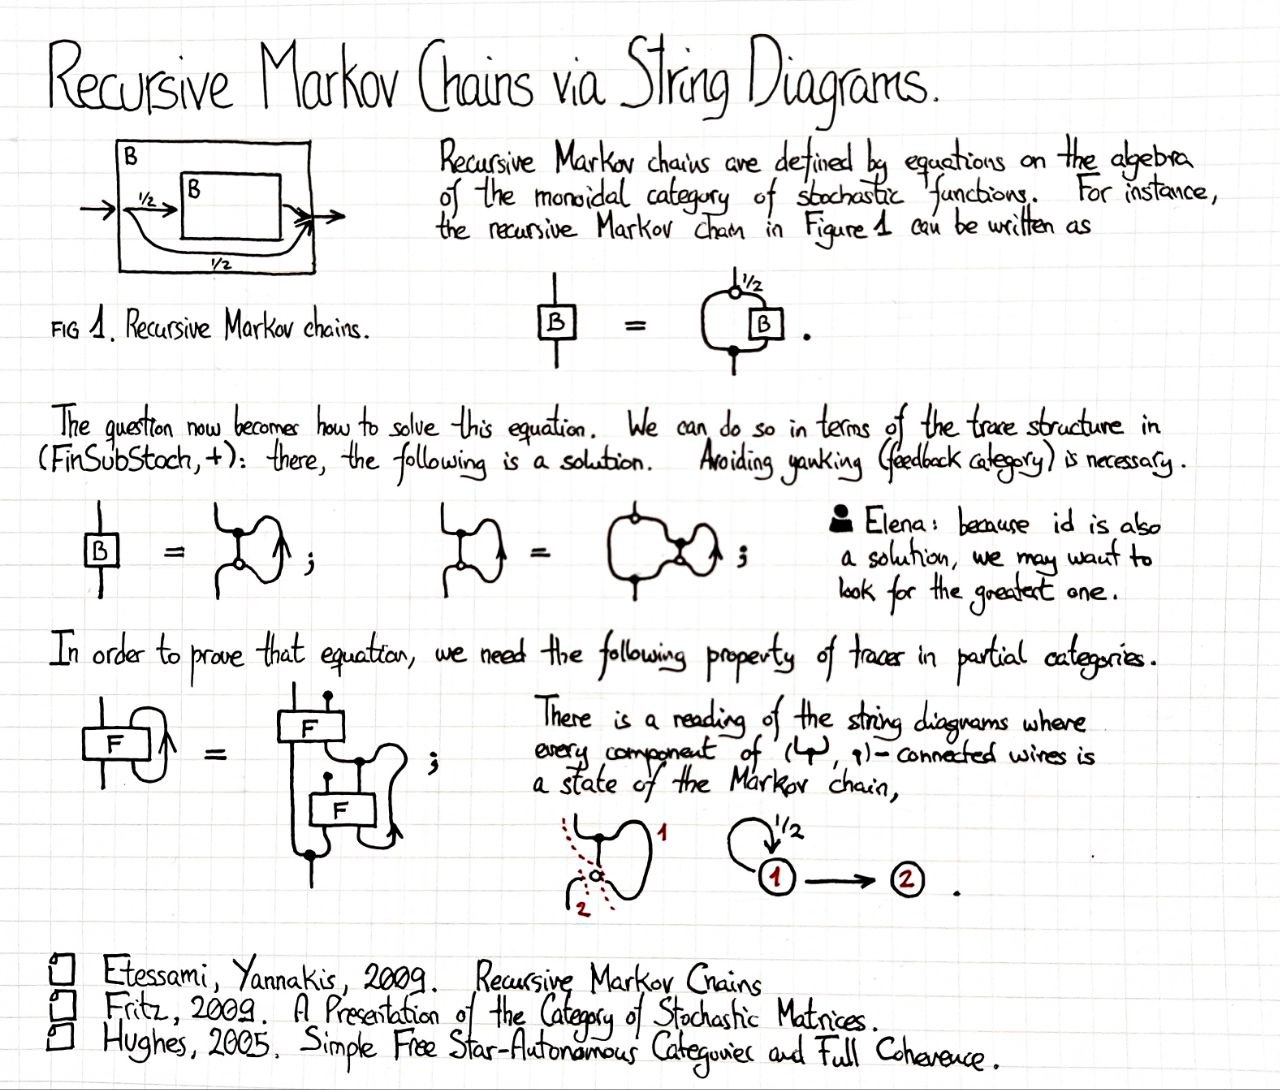 Recursive Markov Chains via String Diagrams.
B
B
1/2
1/2
FIG 1. Recursive Markov chains.
Recursive Markov chains are defined by equations on the algebra
of the monoidal category of stochastic functions. For instance,
the recursive Markov chain in Figure 1 can be written as
B = 1/2 B .
The question now becomes how to solve this equation. We can do so in terms of the trace structure in
(FinSubStoch, +): there, the following is a solution. Avoiding yanking (feedback category) is necessary.
B = ; = ;
Elena: because id is also
a solution, we may want to
look for the greatest one.
In order to prove that equation, we need the following property of traces in partial categories.
F = F F ;
There is a reading of the string diagrams where
every component of ( , )-connected wires is
a state of the Markov chain,
1 2
1/2
1 → 2 .
Etessami, Yannakis, 2009. Recursive Markov Chains
Fritz, 2009. A Presentation of the Category of Stochastic Matrices.
Hughes, 2005. Simple Free Star-Autonomous Categories and Full Coherence.